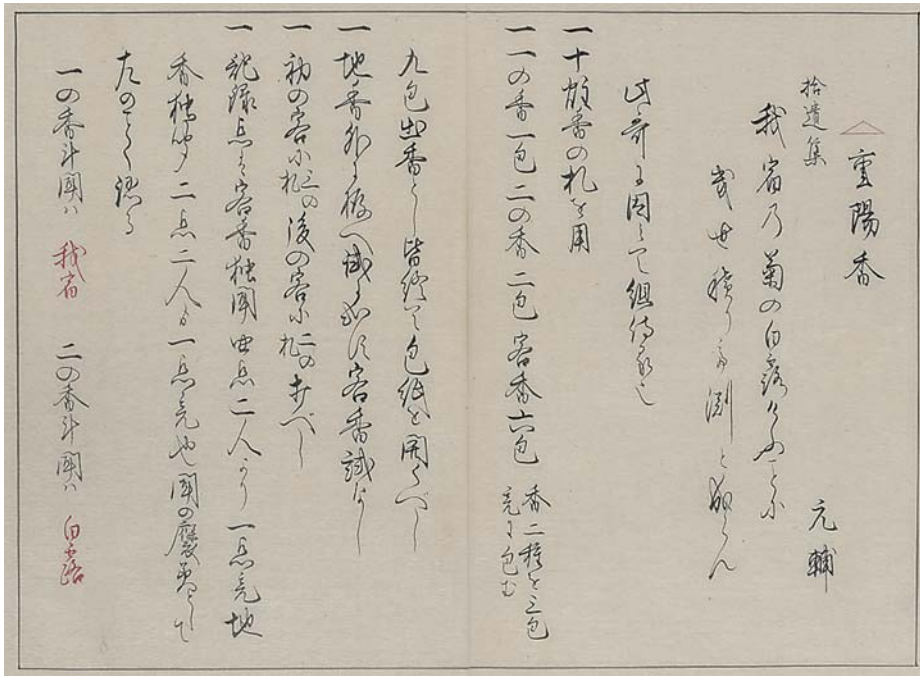 重陽香
拾遺集 元輔
我宿乃菊の白露けふことに
幾世積りて淵と成らん
此哥に因みて組侍る也
一十炷香の札を用
一一の香一包二の香二包客香六包 香二種を三包
完に包む
九包出香とし皆終て包紙を開くべし
一地香外に拵へ試に出す客香試なし
一初の客に三の札後の客に二の札打べし
一記録点は客香独聞四点二人より一点完地
香独聞二点二人より一点完也聞の褒美として
左のことく認る
一の香斗聞ハ 我宿 二の香斗聞ハ 白露